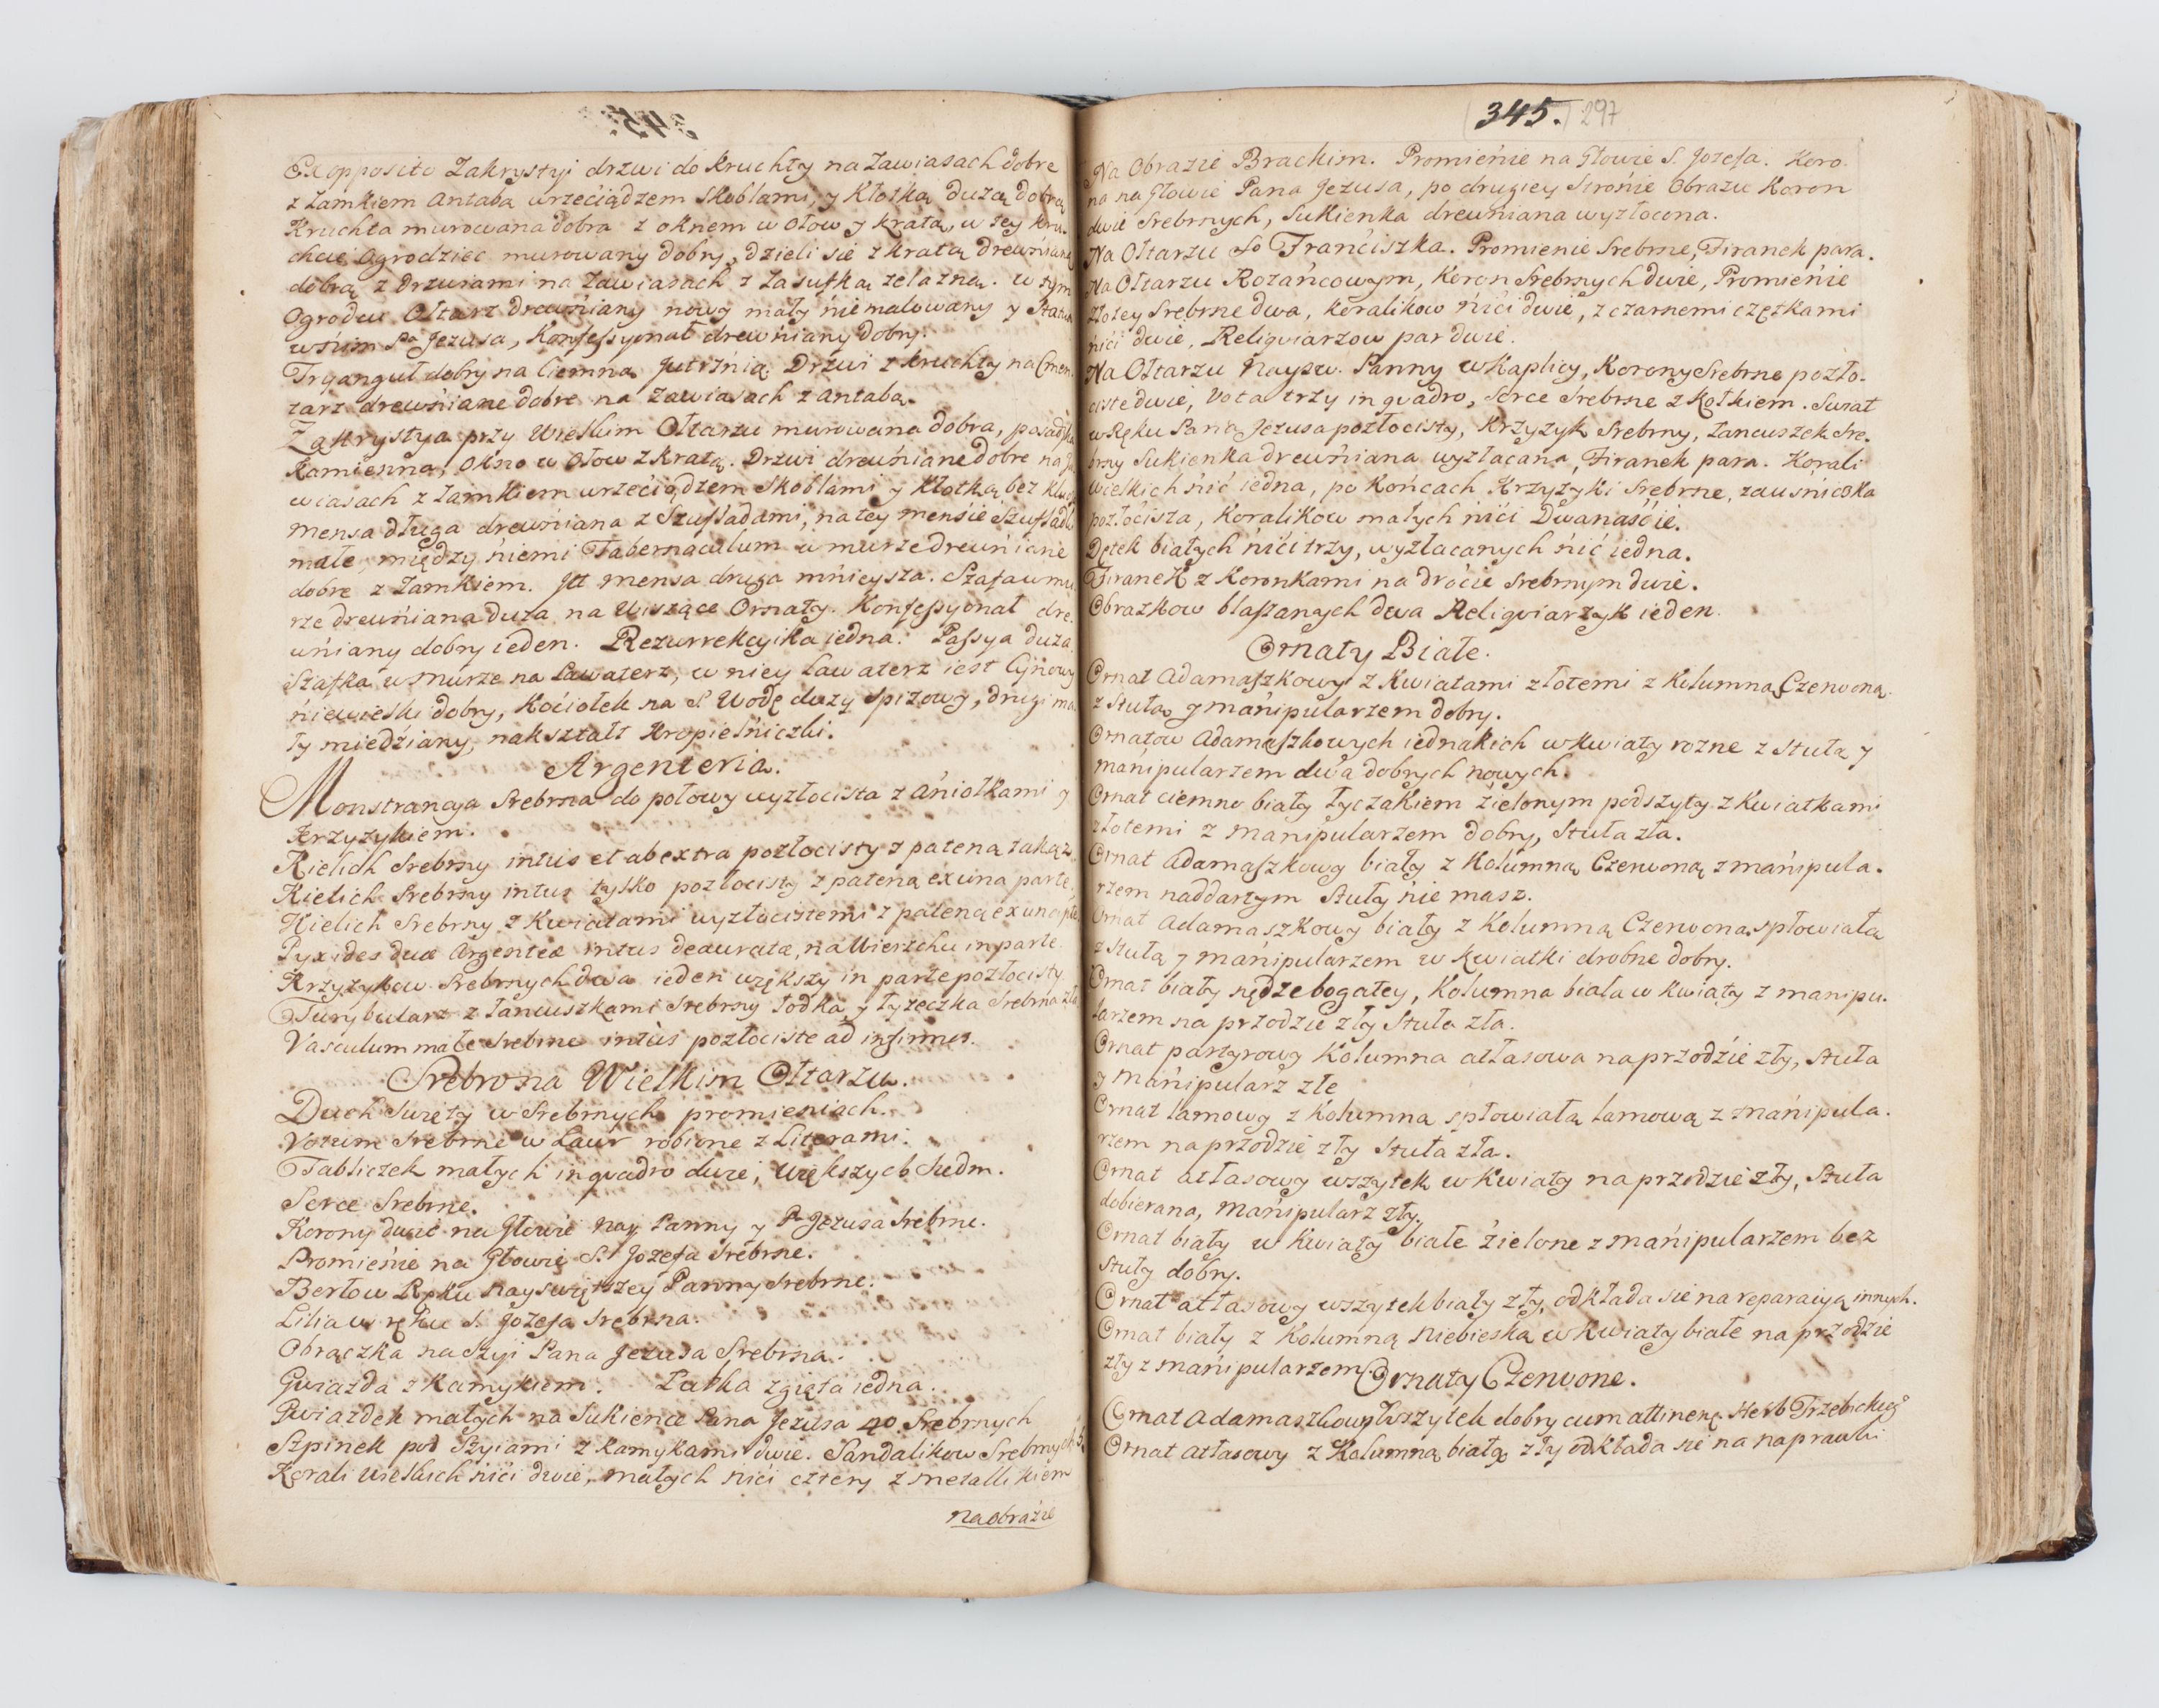 Ex opposito Zakrystyi drzwi do Kruchty na zawiasach dobre
z zamkiem Antabą wrzeciądzem Skoblami, y Kłotką dużą dobrą
Kruchta murowana dobra z oknem w ołow y kratą, w tey kru-
chcie Ogrodziec murowany dobry, dzieli się z kratą drewnianą
dobrą z drzwiami na Zawiasach z Zasufką żelazną. w tym
Ogrodcu Ołtarz drewniany nowy mały nie malowany y Statua
w nim Pa Jezusa, Konfessyonał drewniany dobry.
Tryanguł dobry na Ciemną Jutrznią. Drzwi z kruchty na Cmen-
tarz drewniane dobre na Zawiasach z antabą.
Zakrystya przy Wielkim Ołtarzu murowana dobra, posadzka
Kamienna, Okno w Ołow z Kratą. Drzwi drewniane dobre na Za
wiasach z Zamkiem wrzeciądzem Skoblami y Kłotką bez klucza
Mensa długa drewniana z Szufladami, na tey mensie Szufladki
małe, między niemi Tabernaculum w murze drewniane
dobre z Zamkiem. Jtt mensa druga mnieysza. Szafa w mu
rze drewniana duża na Wiszące Ornaty. Konfessyonał dre-
wniany dobry ieden. Rezurrekcyika iedna. Passya duża
Szafka w murze na Lawaterz, w niey Lawaterz iest Cynowy
niewielki dobry, Kociołek na S. Wodę duży spiżowy, drugi ma
ły miedziany, nakształt Kropielniczki.
Argenteria.
Monstrancya Srebrna do połowy wyzłocista z Aniołkami y
Krzyżykiem.
Kielich Srebrny intus et ab extra pozłocisty z pateną takąż.
Kielich Srebrny intus tylko pozłocisty z pateną ex una parte.
Kielich Srebrny z Kwiatami wyzłocistemi z pateną ex una pte.
Pyxides duæ Argenteæ intus deauratæ, na Wierzchu in parte.
Krzyżykow Srebrnych dwa ieden większy in parte pozłocisty
Turybularz z łancuszkami Srebrny łodka y łyżeczka Srebrna zła
Vasculum małe Srebrne intus pozłociste ad infirmos.
Srebro na Wielkim Ołtarzu.
Duch Swięty w Srebrnych promieniach.
Votum Srebrne w Laur robione z Literami.
Tabliczek małych in quadro dwie, większych Siedm.
Serce Srebrne.
Korony dwie na Głowie Nay Panny y P. Jezusa Srebrne.
Promienie na Głowie S. Jozefa Srebrne.
Berło w Ręku Nayswiętszey Panny Srebrne.
Lilia w ręku S. Jozefa Srebrna.
Obrączka na Szyi Pana Jezusa Srebrna.
Gwiazda z Kamykiem. Latka zgięta iedna.
Gwiazdek małych na Sukience Pana Jezusa 40. Srebrnych
Szpinek pod Szyiami z Kamykami dwie. Sandalikow Srebrnych
Korali wielkich nici dwie, małych nici cztery z metallikiem
na obrazie
345. 297
Na Obrazie Brackim. Promienie na Głowie S. Jozefa. Koro-
na na Głowie Pana Jezusa, po drugiey Stronie Obrazu Koron
dwie Srebrnych, Sukienka drewniana wyzłocona.
Na Ołtarzu So Franciszka. Promienie Srebrne, Firanek para.
Na Ołtarzu Rożańcowym, Koron Srebrnych dwie, Promienie
złotey Srebrne dwa, Koralikow nici dwie, z czarnemi czętkami
nici dwie, Religiarzow par dwie.
Na Ołtarzu Nayśw. Panny w Kaplicy, Korony Srebrne pozło-
ciste dwie, Vota trzy in quadro, Serce Srebrne z Kołkiem. Swiat
w Ręku Pana Jezusa pozłocisty, Krzyżyk Srebrny, Łancuszek Sre-
brny Sukienka drewniana wyzłacana, Firanek para. Korali
wielkich nić iedna, po Końcach Krzyżyki Srebrne, zausnicka
pozłocista, Koralikow małych nici Dwanaście.
Dętek białych nici trzy, wyzłacanych nić iedna.
Firanek z Koronkami na drocie Srebrnym dwie.
Obrazkow blaszanych dwa Religiarzyk ieden.
Ornaty Białe.
Ornat Adamaszkowy z Kwiatami złotemi z Kolumną Czerwoną
z Stułą y manipularzem dobry.
Ornatow Adamaszkowych iednakich w Kwiaty rożne z Stułą y
manipularzem dwa dobrych nowych.
Ornat ciemno biały łyczakiem zielonym podszyty z Kwiatkami
złotemi z manipularzem dobry, Stuła zła.
Ornat Adamaszkowy biały z Kolumną Czerwoną z manipula-
rzem naddartym Stuły nie masz.
Ornat Adamaszkowy biały z Kolumną Czerwoną spłowiałą
z Stułą y manipularzem w kwiatki drobne dobry.
Ornat biały nędze bogatey, Kolumna biała w kwiaty z manipu-
larzem na przodzie zły Stuła zła.
Ornat partyrowy Kolumna atłasowa na przodzie zły, Stuła
y Manipularz złe
Ornat lamowy z Kolumną spłowiałą lamową z manipula-
rzem na przodzie zły Stuła zła.
Ornat atłasowy wszytek w Kwiaty na przodzie zły, Stuła
dobierana, Manipularz zły.
Ornat biały w Kwiaty białe zielone z manipularzem bez
Stuły dobry.
Ornat atłasowy wszytek biały zły, odkłada się na reparaiyą innych.
Ornat biały z Kolumną Niebieską w Kwiaty białe na przodzie
zły z manipularzem
Ornaty Czerwone.
Ornat Adamaszkowy Wszytek dobry cum attinen. Herb Trzebickiego
Ornat Atłasowy z Kolumną białą zły odkłada się na naprawki